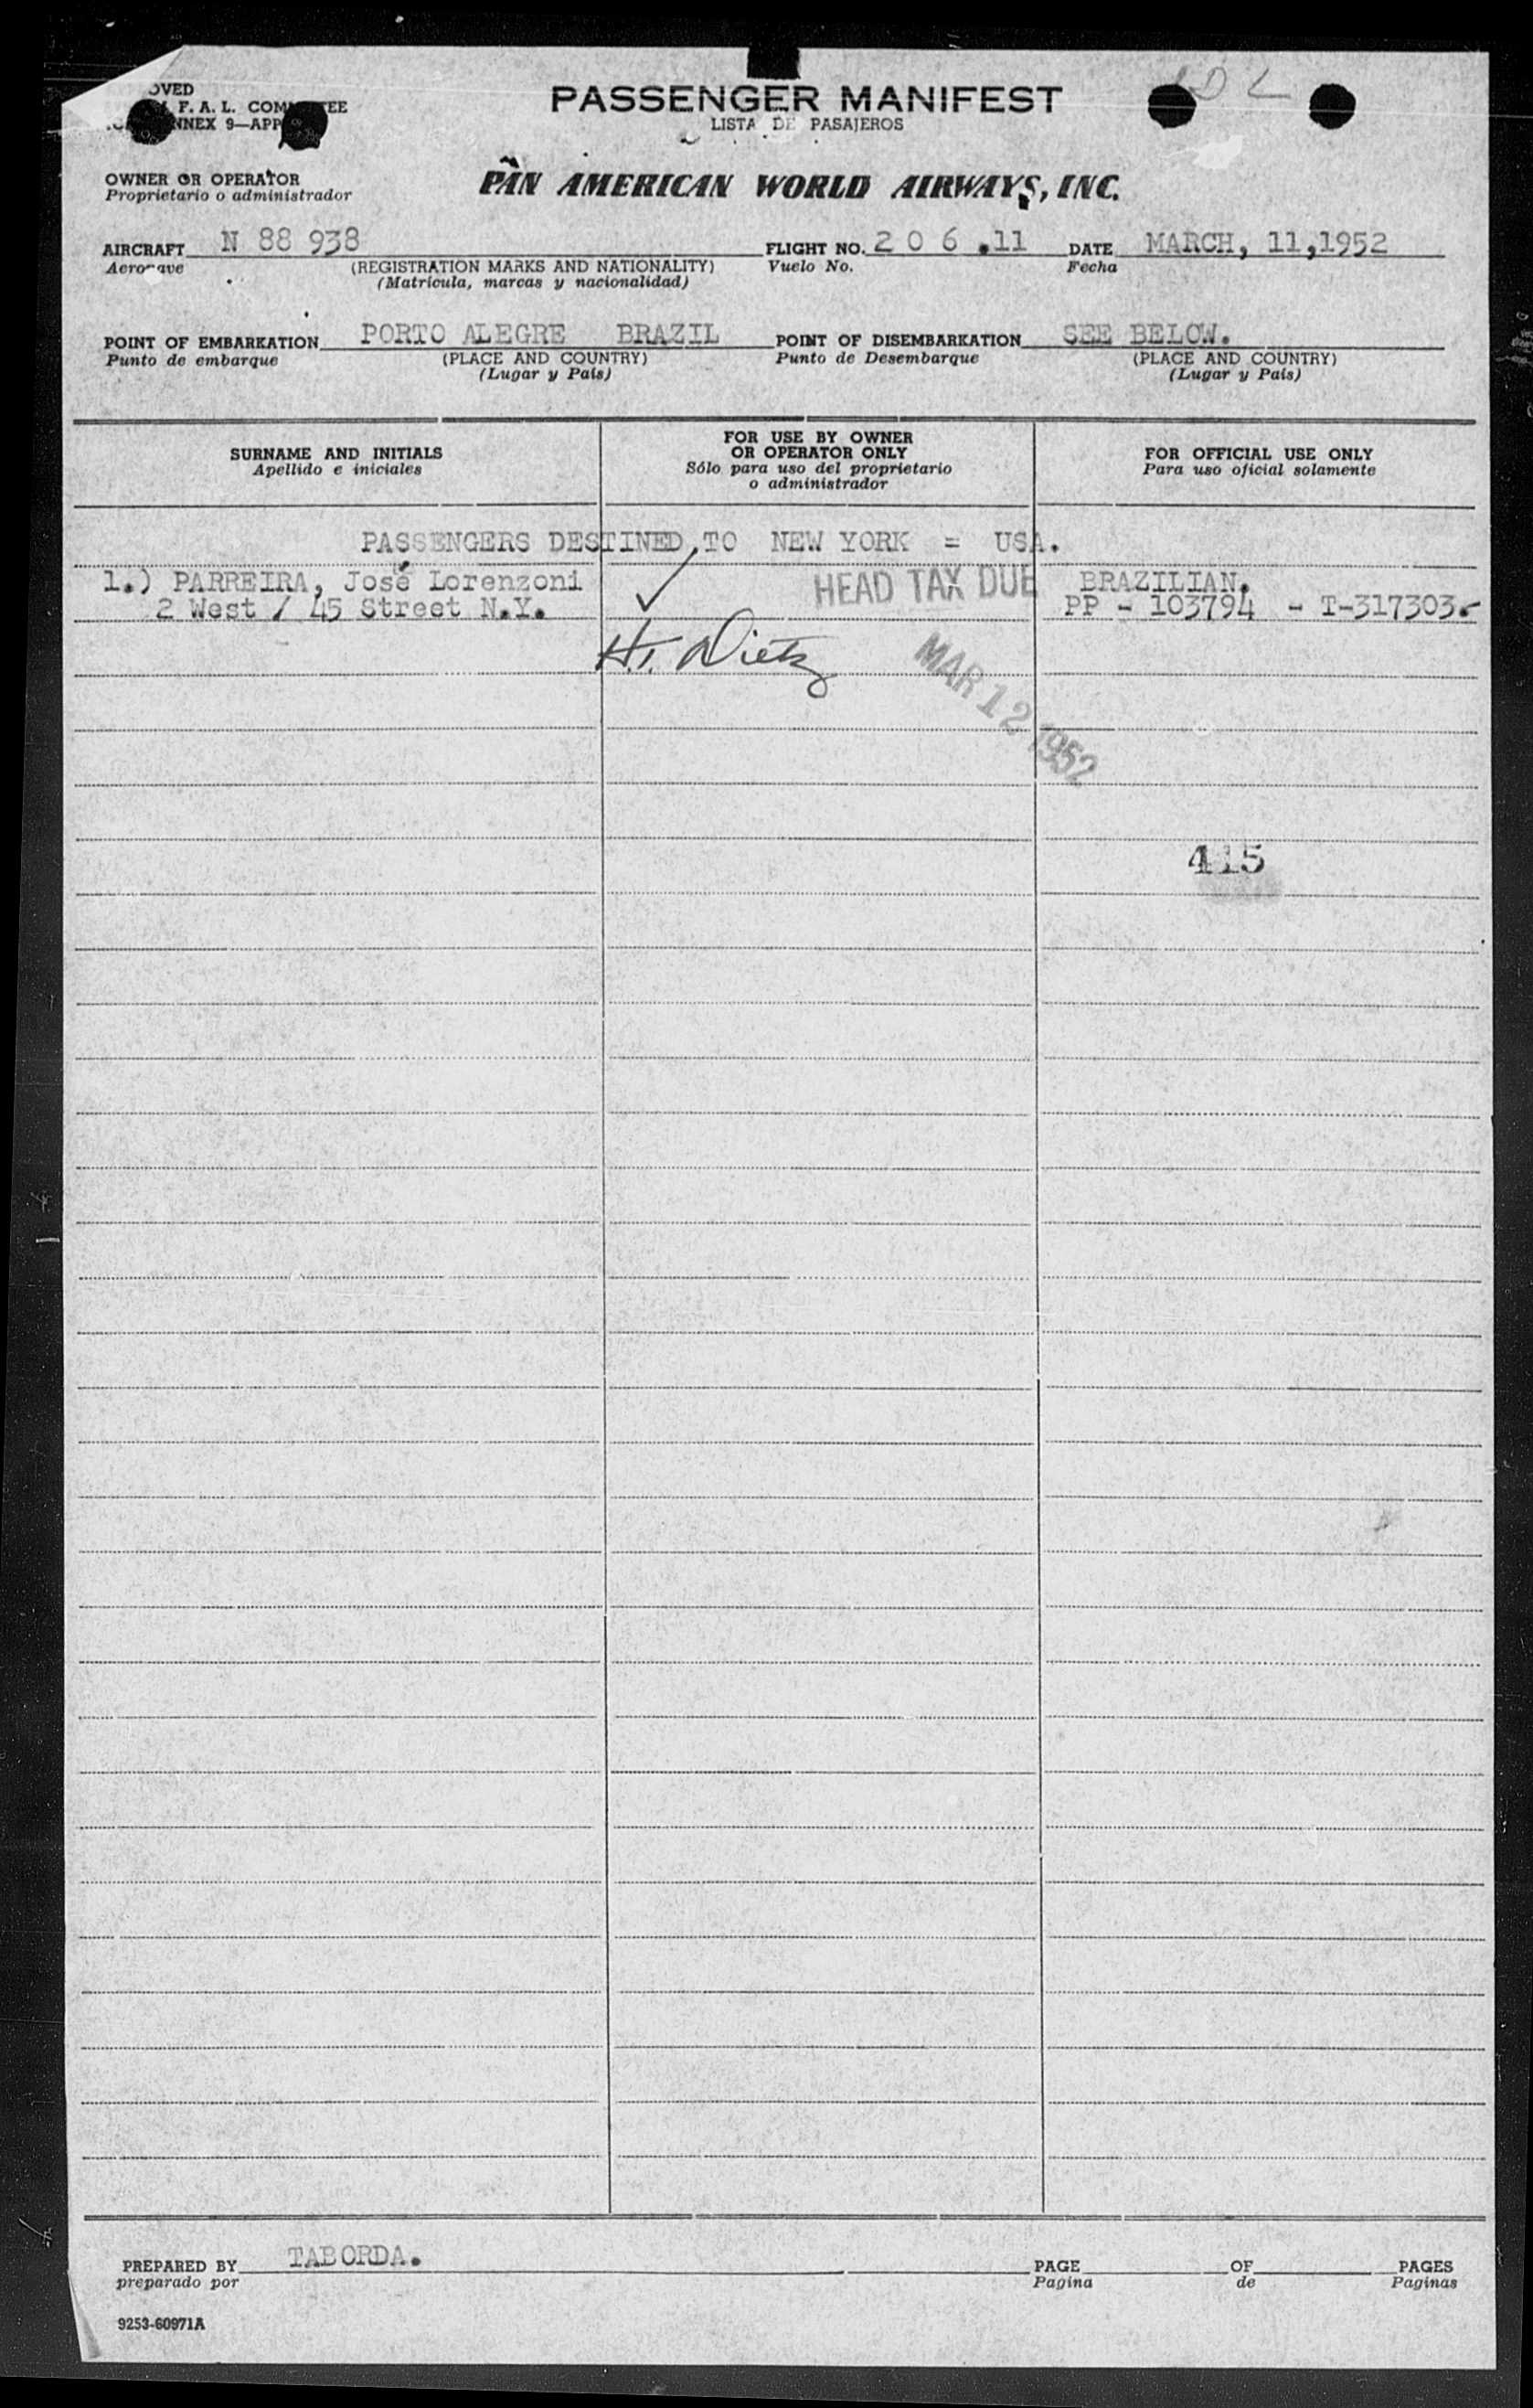 OVED
F. A. L. COMMITTEE
ANNEX 9—APP
PASSENGER MANIFEST
LISTA DE PASAJEROS
OWNER OR OPERATOR
Proprietario o administrador
PAN AMERICAN WORLD AIRWAYS, INC.
AIRCRAFT N 88 938 FLIGHT NO. 2 0 6 .11 DATE MARCH, 11,1952
Aeronave (REGISTRATION MARKS AND NATIONALITY) Vuelo No. Fecha
(Matricula, marcas y nacionalidad)
POINT OF EMBARKATION PORTO ALEGRE BRAZIL POINT OF DISEMBARKATION SEE BELOW.
Punto de embarque (PLACE AND COUNTRY) Punto de Desembarque (PLACE AND COUNTRY)
(Lugar y Pais) (Lugar y Pais)
SURNAME AND INITIALS
Apellido e iniciales
FOR USE BY OWNER
OR OPERATOR ONLY
Sólo para uso del proprietario
o administrador
FOR OFFICIAL USE ONLY
Para uso oficial solamente
PASSENGERS DESTINED TO NEW YORK = USA.
1.) PARREIRA, José Lorenzoni HEAD TAX DUE BRAZILIAN.
2 West / 45 Street N.Y. PP - 103794 - T-317303.-
H. Dietz
MAR 12 1952
415
PREPARED BY TABORDA. PAGE OF PAGES
preparado por Pagina de Paginas
9253-60971A